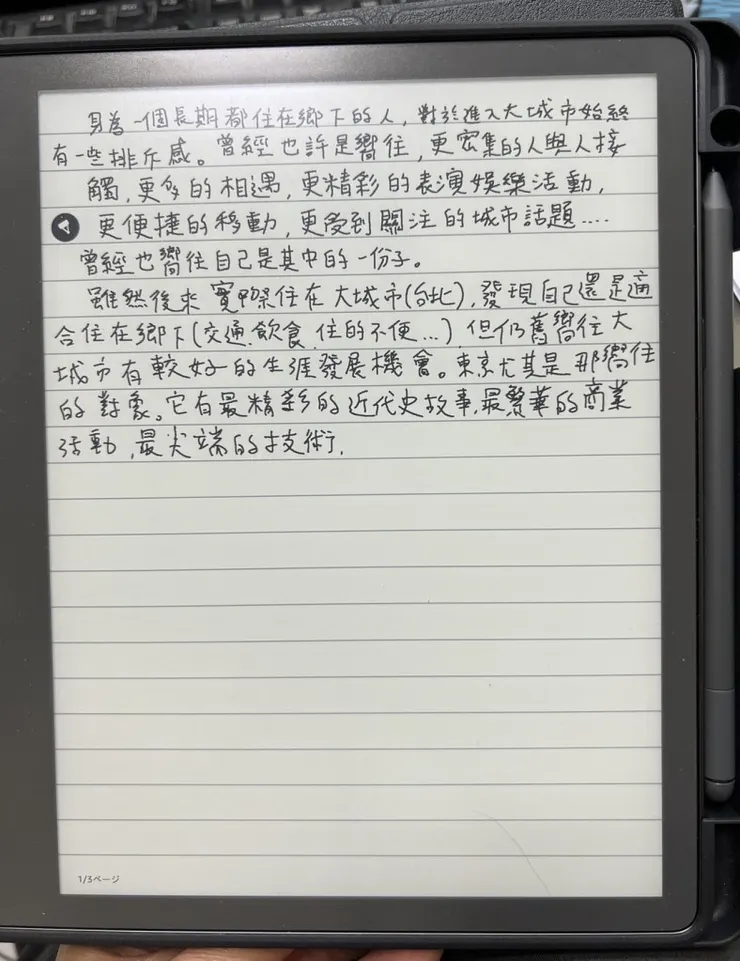 身為一個長期都住在鄉下的人，對於進入大城市始終
有一些排斥感。曾經也許是嚮往，更密集的人與人接
觸，更多的相遇，更精彩的表演娛樂活動，
更便捷的移動，更受到關注的城市話題....
曾經也嚮往自己是其中的一份子。
雖然後來實際住在大城市(台北)，發現自己還是適
合住在鄉下(交通、飲食、住的不便...)，但仍舊嚮往大
城市有較好的生涯發展機會。東京尤其是那嚮往
的對象。它有最精彩的近代史故事，最繁華的商業
活動，最尖端的技術，
1/3ページ